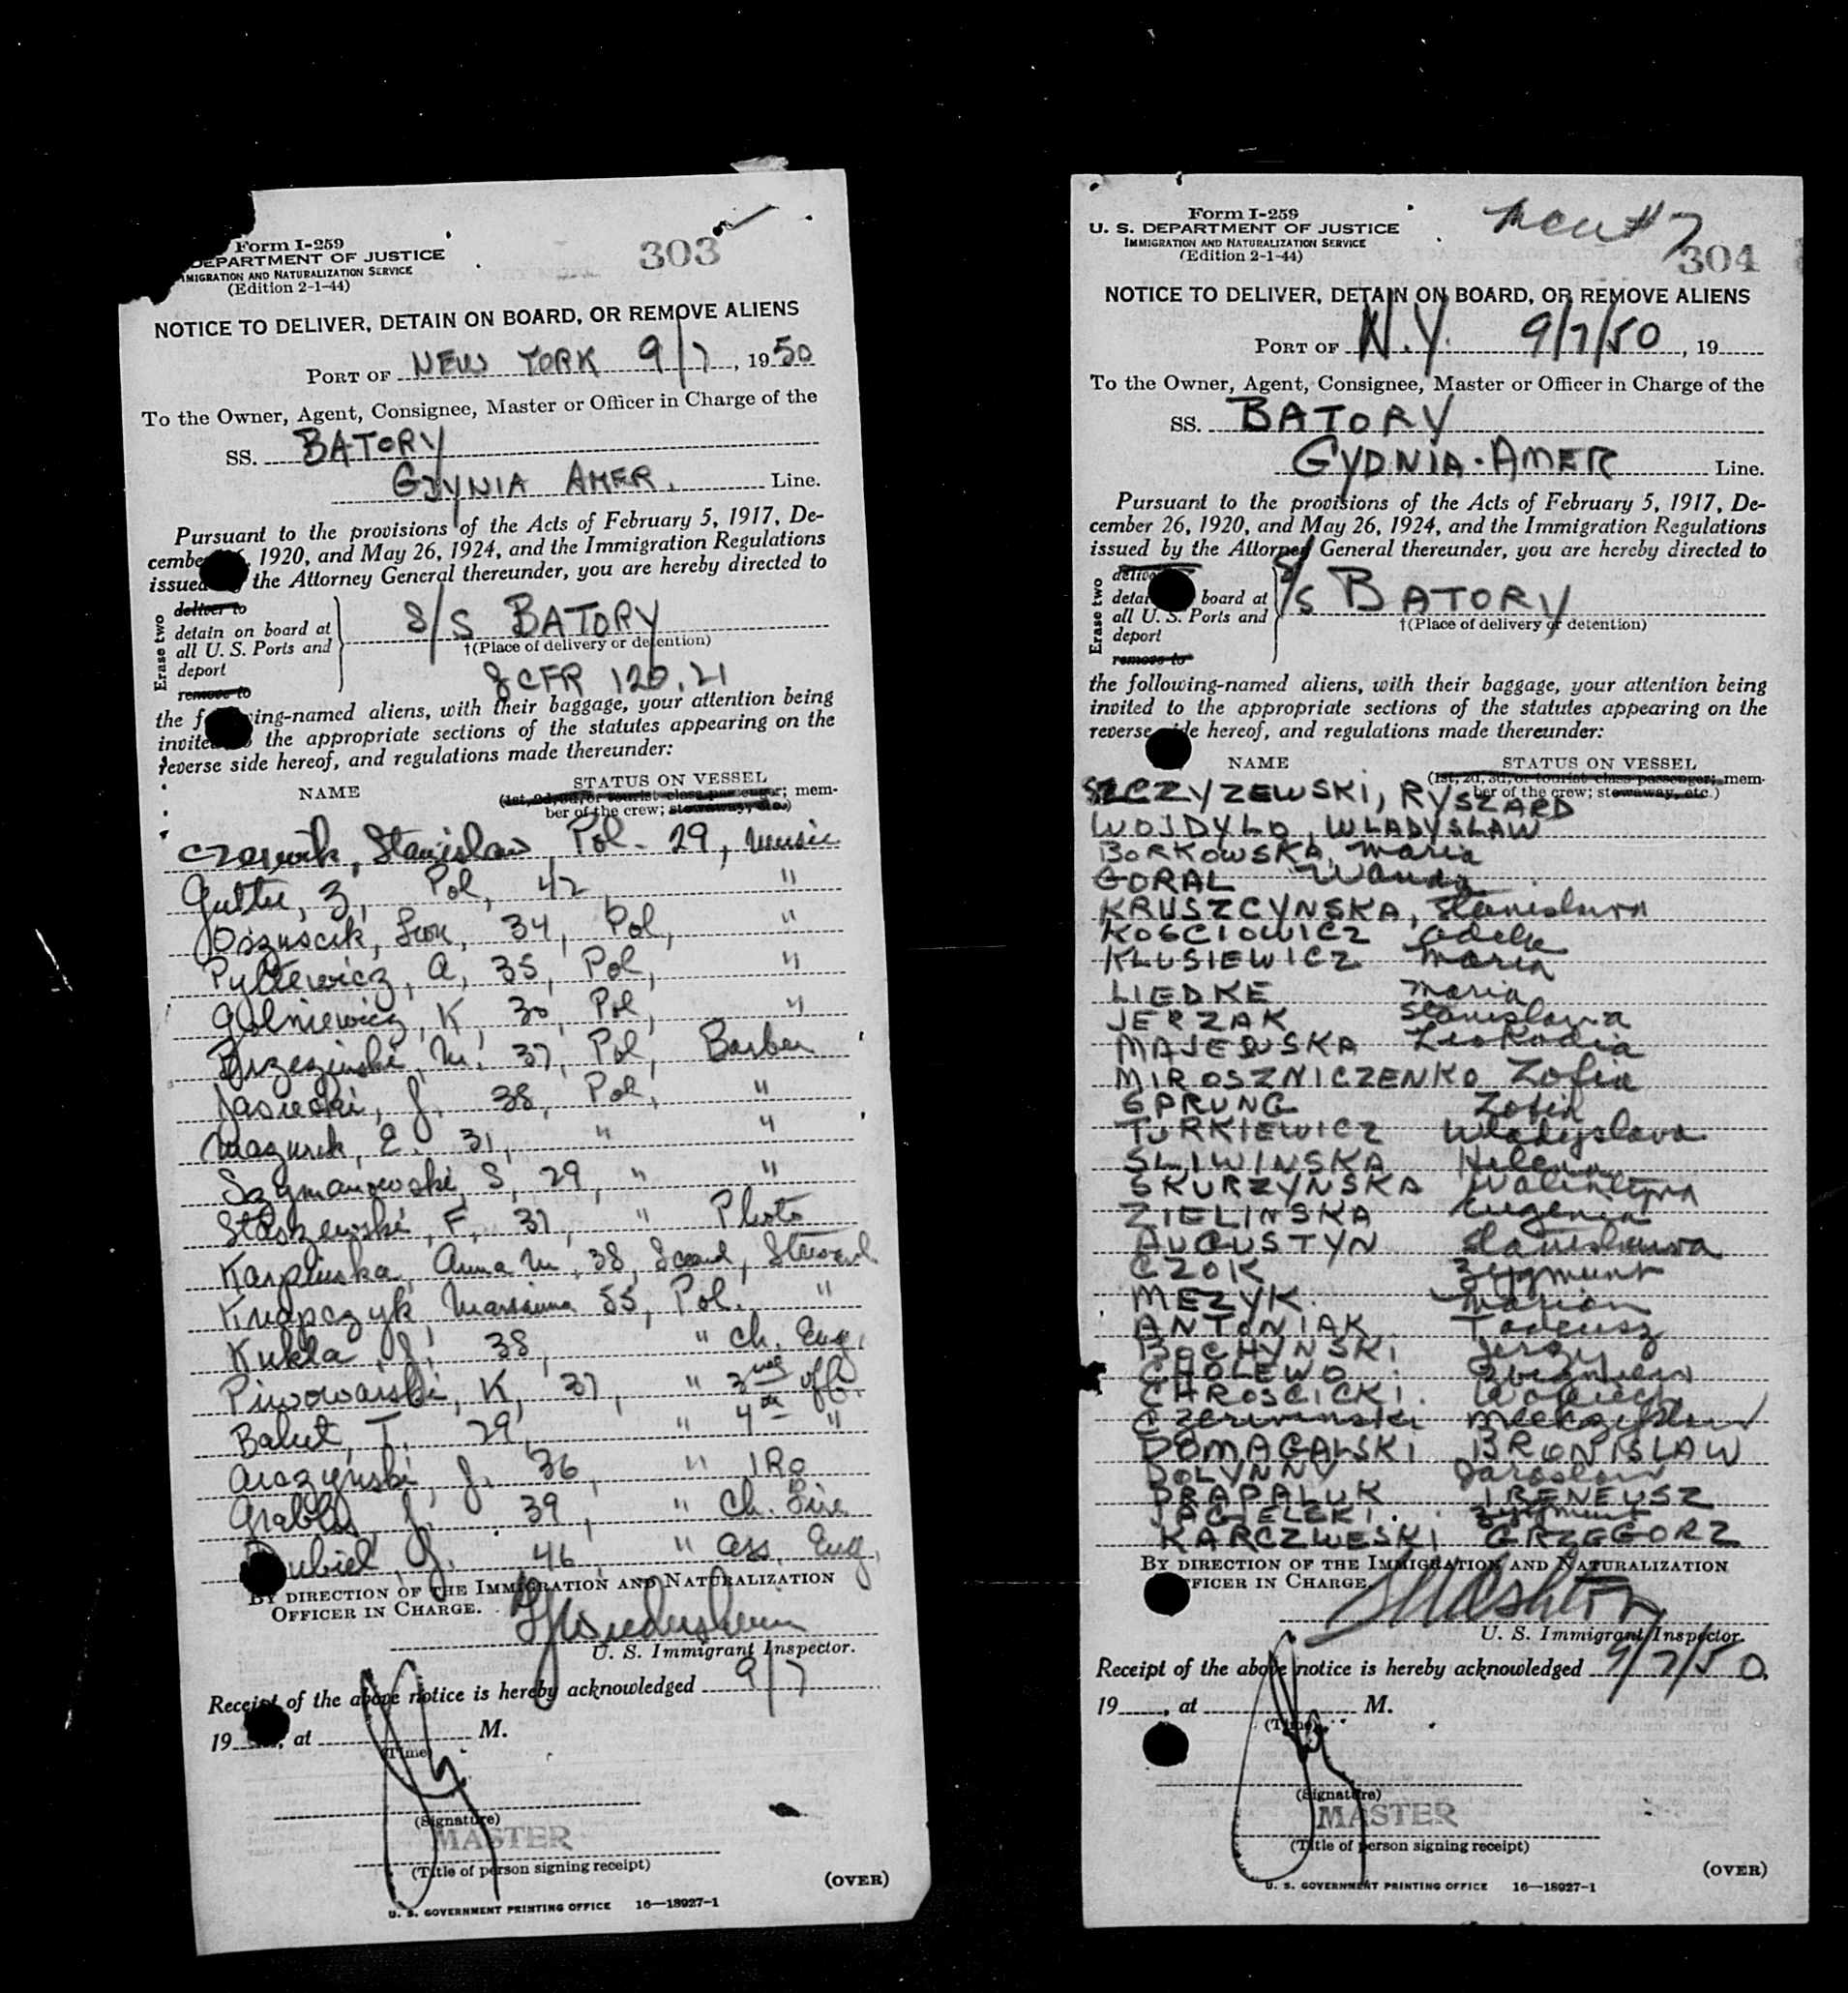 Form I-259
DEPARTMENT OF JUSTICE
IMMIGRATION AND NATURALIZATION SERVICE
(Edition 2-1-44)
303
NOTICE TO DELIVER, DETAIN ON BOARD, OR REMOVE ALIENS
PORT OF NEW YORK 9/7, 1950
To the Owner, Agent, Consignee, Master or Officer in Charge of the
SS. BATORY
GDYNIA AMER. Line.
Pursuant to the provisions of the Acts of February 5, 1917, De-
cember 1920, and May 26, 1924, and the Immigration Regulations
issued the Attorney General thereunder, you are hereby directed to
Erase two
deliver to
detain on board at
all U. S. Ports and
deport
remove to
S/S BATORY
†(Place of delivery or detention)
8 CFR 120.21
the following-named aliens, with their baggage, your attention being
invited the appropriate sections of the statutes appearing on the
reverse side hereof, and regulations made thereunder:
NAME
STATUS ON VESSEL
(1st, 2d, 3d, or tourist class passenger; mem-
ber of the crew; stowaway, etc.)
Stanislaw, Pol. 29, Music
Z, Pol, 42 "
34, Pol, "
A, 35, Pol, "
K, 30, Pol, "
Brzezinski, M. 37, Pol, Barber
Jasiecki, J. 38, Pol, "
Mazurek, E. 31, " "
Szymanowski, S, 29, " "
Staszewski, F, 37, " Photo
Karpinska, Anna M, 38, Steward
Knapczyk, Marianna 55, Pol. "
Kukla, J, 38, " Ch. Eng.
Piwowarski, K, 37, " 3rd off.
Balut, T, 29, " 4th "
J. 36, " 1 RO
J, 39, " Ch. Fire
Dubiel, J. 46 " Ass. Eng.
BY DIRECTION OF THE IMMIGRATION AND NATURALIZATION
OFFICER IN CHARGE.
U. S. Immigrant Inspector.
Receipt of the above notice is hereby acknowledged 9/7
19 , at M.
(Time)
(Signature)
MASTER
(Title of person signing receipt)
(OVER)
U. S. GOVERNMENT PRINTING OFFICE 16—18927-1
Form I-259
U. S. DEPARTMENT OF JUSTICE
IMMIGRATION AND NATURALIZATION SERVICE
(Edition 2-1-44)
#7
304
NOTICE TO DELIVER, DETAIN ON BOARD, OR REMOVE ALIENS
PORT OF N.Y. 9/7/50, 19
To the Owner, Agent, Consignee, Master or Officer in Charge of the
SS. BATORY
GYDNIA-AMER Line.
Pursuant to the provisions of the Acts of February 5, 1917, De-
cember 26, 1920, and May 26, 1924, and the Immigration Regulations
issued by the Attorney General thereunder, you are hereby directed to
Erase two
deliver
detain board at
all U. S. Ports and
deport
remove to
S/S BATORY
†(Place of delivery or detention)
the following-named aliens, with their baggage, your attention being
invited to the appropriate sections of the statutes appearing on the
reverse side hereof, and regulations made thereunder:
NAME
STATUS ON VESSEL
(1st, 2d, 3d, or tourist class passenger; mem-
ber of the crew; stowaway, etc.)
SZCZYZEWSKI, RYSZARD
WOJDYLO, WLADYSLAW
BORKOWSKA, Maria
GORAL Wanda
KRUSZCYNSKA, Stanislawa
KOSCIOWICZ Adela
KLUSIEWICZ Maria
LIEDKE Maria
JERZAK Stanislawa
MAJEWSKA Leokadia
MIROSZNICZENKO Zofia
SPRUNG Zofia
TURKIEWICZ Wladyslawa
SLIWINSKA Helena
SKURZYNSKA Walentyna
ZIELINSKA Eugenia
AUGUSTYN Stanislawa
CZOK Zygmunt
MEZYK Marian
ANTONIAK Tadeusz
BOCHYNSKI Jerzy
CHOLEWO Zbigniew
CHROSCICKI Wojciech
Czerwinski Mieczyslaw
DOMAGALSKI BRONISLAW
DOLYNNY Jaroslaw
DRAPALUK IRENEUSZ
JAGIELSKI Zygmunt
KARCZWESKI GRZEGORZ
BY DIRECTION OF THE IMMIGRATION AND NATURALIZATION
OFFICER IN CHARGE.
U. S. Immigrant Inspector.
Receipt of the above notice is hereby acknowledged 9/7/50,
19 , at M.
(Time)
(Signature)
MASTER
(Title of person signing receipt)
(OVER)
U. S. GOVERNMENT PRINTING OFFICE 16—18927-1